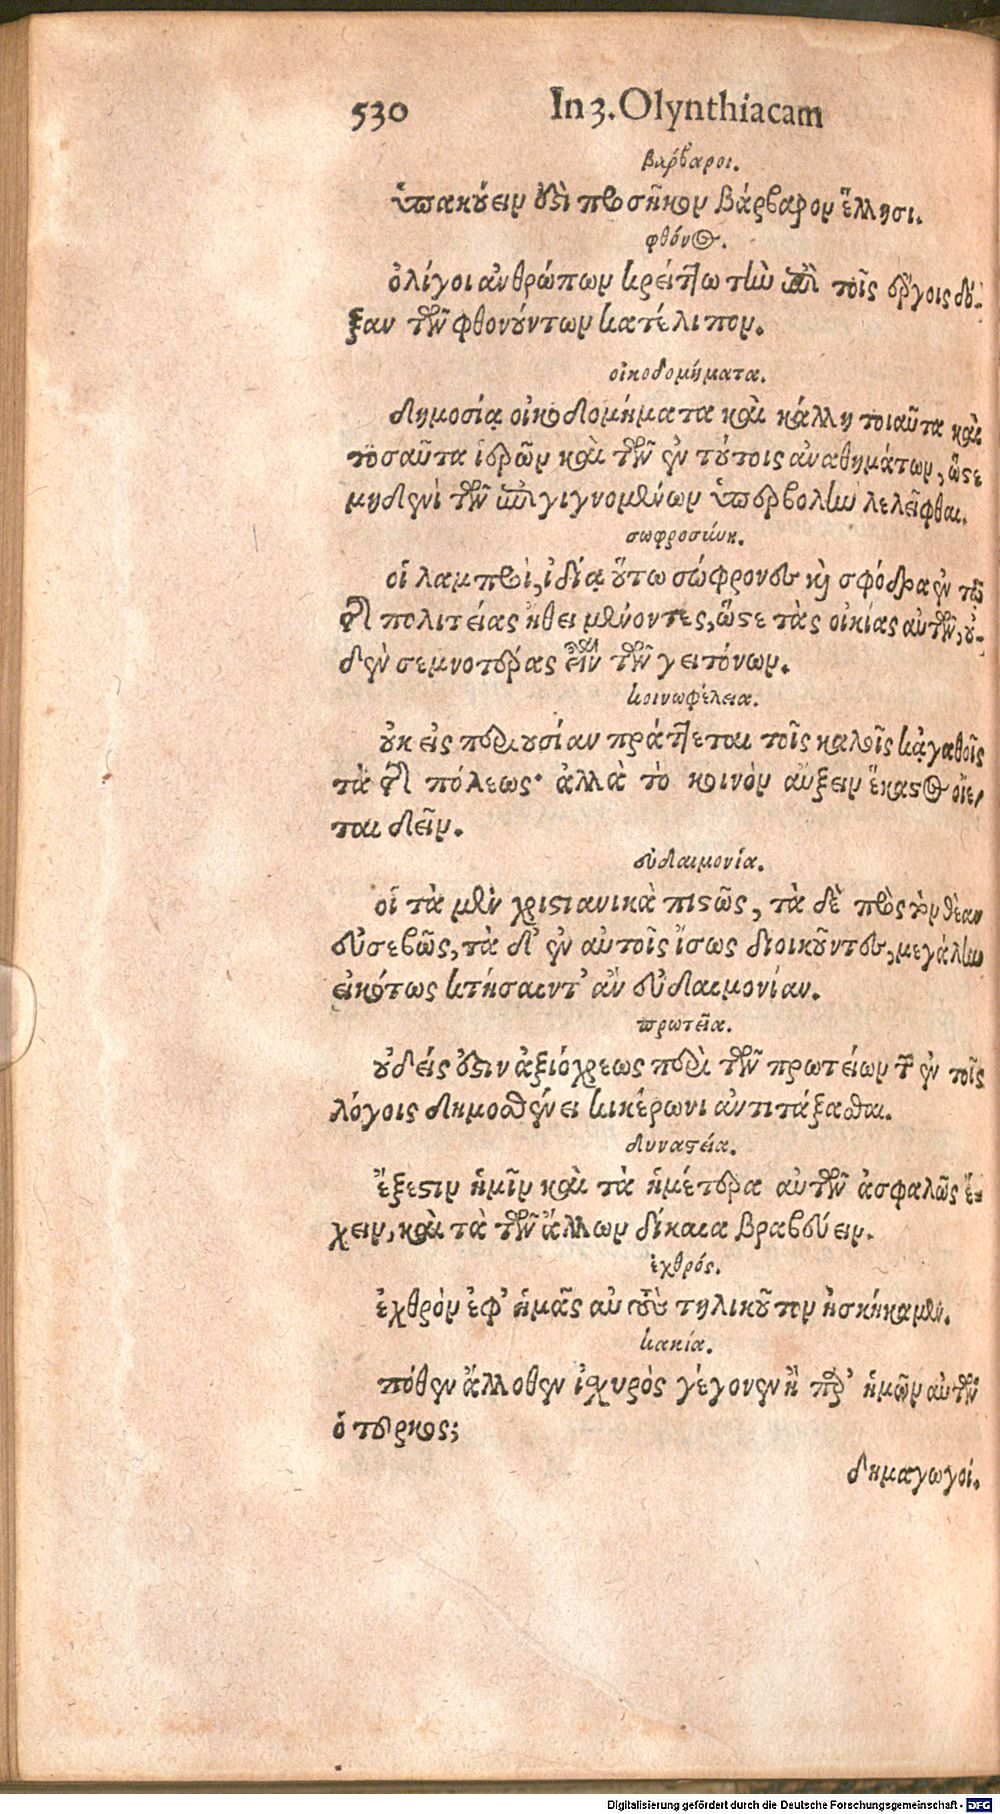 530 In 3. Olynthiacam
βάρβαροι.
ὑπακούειν δεῖ προσῆκον βάρβαρον ἕλλησι.
φθόνος.
ὀλίγοι ἀνθρώπων κρείττω τὴν ἐπὶ τοῖς ἔργοις δό-
ξαν τῶν φθονούντων κατέλιπον.
οἰκοδομήματα.
δημοσίᾳ οἰκοδομήματα καὶ κάλλη τοιαῦτα καὶ
τοσαῦτα ἱερῶν καὶ τῶν ἐν τούτοις ἀναθημάτων, ὥστε
μηδενὶ τῶν ἐπιγιγνομένων ὑπερβολὴν λελεῖφθαι.
σωφροσύνη.
οἱ λαμπροὶ, ἰδίᾳ οὕτω σώφρονες καὶ σφόδρα ἐν τῷ
τῆς πολιτείας ἤθει μένοντες, ὥστε τὰς οἰκίας αὐτῶν, οὐ-
δὲν σεμνοτέρας εἶναι τῶν γειτόνων.
κοινωφέλεια.
οὐκ εἰς περιουσίαν πράττεται τοῖς καλοῖς κἀγαθοῖς
τὰ τῆς πόλεως· ἀλλὰ τὸ κοινὸν αὔξειν ἕκαστος οἴε-
ται δεῖν.
εὐδαιμονία.
οἱ τὰ μὲν χριστιανικὰ πιστῶς, τὰ δὲ πρὸς τὸν θεὸν
εὐσεβῶς, τὰ δ' ἐν αὐτοῖς ἴσως διοικοῦντες, μεγάλην
εἰκότως κτήσαιντ' ἂν εὐδαιμονίαν.
πρωτεῖα.
οὐδείς ἐστιν ἀξιόχρεως περὶ τῶν πρωτείων τῶν ἐν τοῖς
λόγοις δημοσθένει κικέρωνι ἀντιτάξασθαι.
δυναστεία.
ἔξεστιν ἡμῖν καὶ τὰ ἡμέτερα αὐτῶν ἀσφαλῶς ἔ-
χειν, καὶ τὰ τῶν ἄλλων δίκαια βραβεύειν.
ἐχθρός.
ἐχθρὸν ἐφ' ἡμᾶς αὐτοὺς τηλικοῦτον ἠσκήκαμεν.
κακία.
πόθεν ἄλλοθεν ἰσχυρὸς γέγονεν ἢ παρ' ἡμῶν αὐτῶν
ὁ τοῦρκος;
δημαγωγοί.
Digitalisierung gefördert durch die Deutsche Forschungsgemeinschaft - DFG